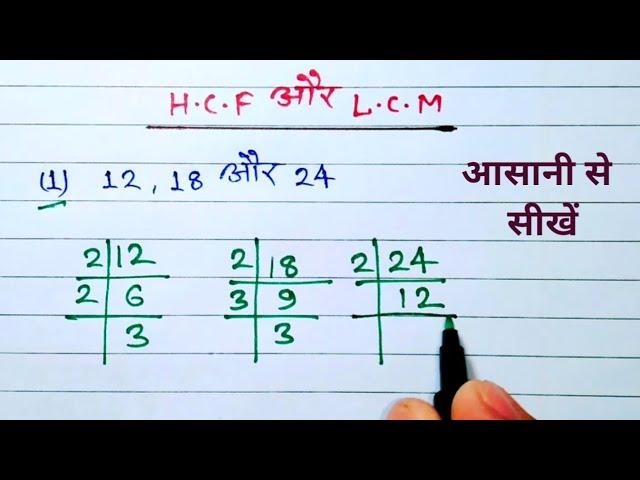 H.C.F और L.C.M
(1) 12, 18 और 24
आसानी से
सीखें
2 12 2 18 2 24
2 6 3 9 12
3 3